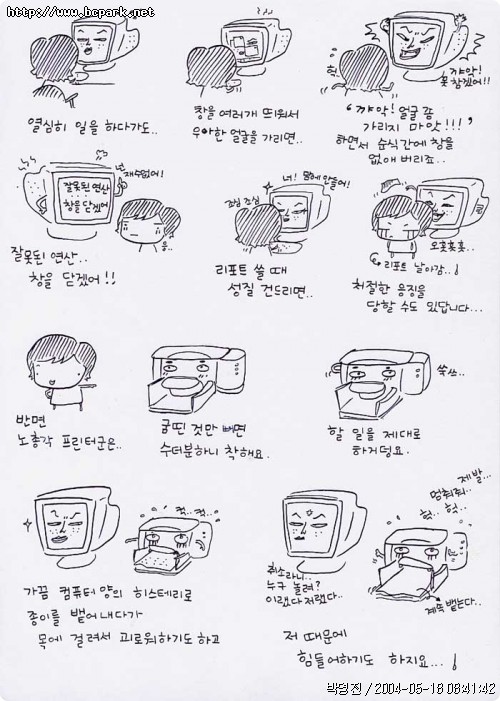 http://www.bcpark.net
열심히 일을 하다가도..
창을 여러개 띄워서
우아한 얼굴을 가리면..
꺄악!
못 참겠어!!
'꺄악! 얼굴 좀
가리지 마앗!!!'
하면서 순식간에 창을
없애 버리죠..
잘못된 연산
창을 닫겠어
넌
재수없어!
응..
잘못된 연산..
창을 닫겠어!!
조심 조심
너! 맘에 안들어!
리포트 쓸 때
성질 건드리면..
오홋홋홋..
리포트 날아감..!
처절한 응징을
당할 수도 있답니다...
반면
노총각 프린터군은..
굼띤 것만 빼면
수더분하니 착해요.
쓱쓱..
할 일을 제대로
하거덩요.
컥..컥..
가끔 컴퓨터 양의 히스테리로
종이를 뱉어 내다가
목에 걸려서 괴로워하기도 하고
취소라니..
누구 놀려?
이랬다저랬다..
제발..
멈춰줘..
헉.. 헉..
계속 뱉는다..
저 때문에
힘들어하기도 하지요...!
박덩진 / 2004-05-18 08:41:42